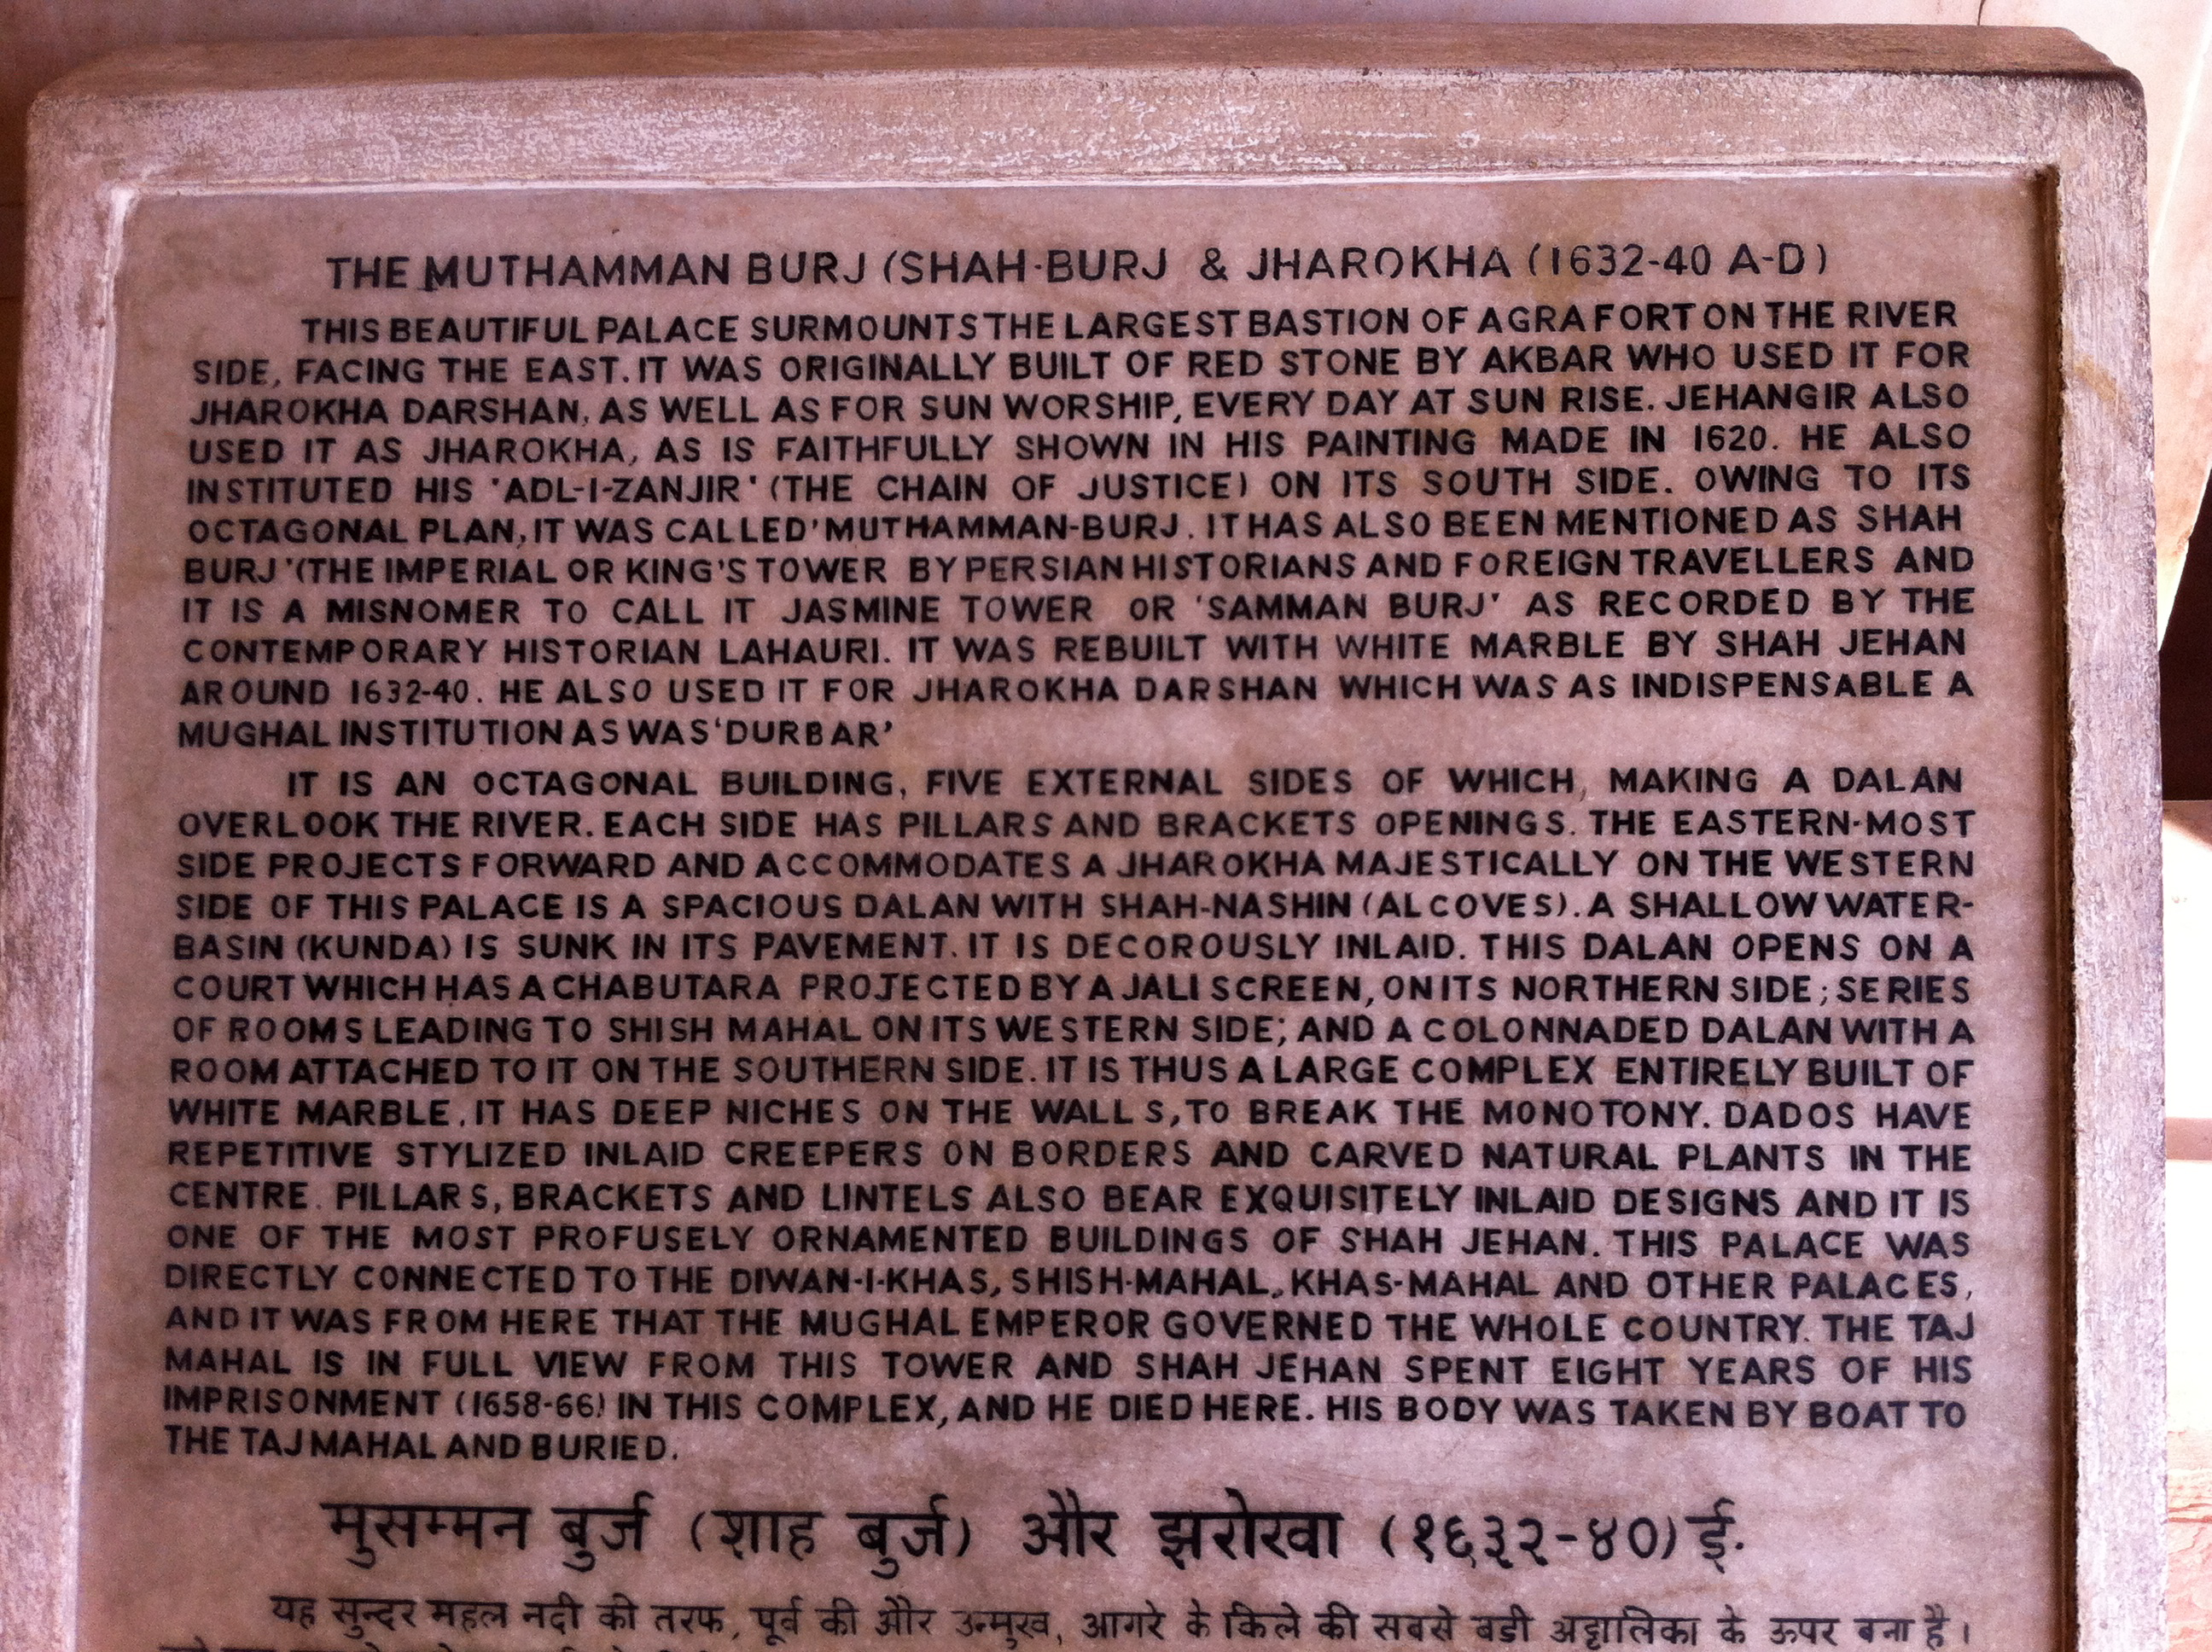 THE MUTHAMMAN BURJ (SHAH-BURJ & JHAROKHA (1632-40 A-D)
THIS BEAUTIFUL PALACE SURMOUNTS THE LARGEST BASTION OF AGRA FORT ON THE RIVER
SIDE, FACING THE EAST. IT WAS ORIGINALLY BUILT OF RED STONE BY AKBAR WHO USED IT FOR
JHAROKHA DARSHAN, AS WELL AS FOR SUN WORSHIP, EVERY DAY AT SUN RISE. JEHANGIR ALSO
USED IT AS JHAROKHA, AS IS FAITHFULLY SHOWN IN HIS PAINTING MADE IN 1620. HE ALSO
INSTITUTED HIS 'ADL-I-ZANJIR' (THE CHAIN OF JUSTICE) ON ITS SOUTH SIDE. OWING TO ITS
OCTAGONAL PLAN, IT WAS CALLED 'MUTHAMMAN-BURJ. IT HAS ALSO BEEN MENTIONED AS SHAH
BURJ '(THE IMPERIAL OR KING'S TOWER BY PERSIAN HISTORIANS AND FOREIGN TRAVELLERS AND
IT IS A MISNOMER TO CALL IT JASMINE TOWER OR 'SAMMAN BURJ' AS RECORDED BY THE
CONTEMPORARY HISTORIAN LAHAURI. IT WAS REBUILT WITH WHITE MARBLE BY SHAH JEHAN
AROUND 1632-40. HE ALSO USED IT FOR JHAROKHA DARSHAN WHICH WAS AS INDISPENSABLE A
MUGHAL INSTITUTION AS WAS 'DURBAR'
IT IS AN OCTAGONAL BUILDING, FIVE EXTERNAL SIDES OF WHICH, MAKING A DALAN
OVERLOOK THE RIVER. EACH SIDE HAS PILLARS AND BRACKETS OPENINGS. THE EASTERN-MOST
SIDE PROJECTS FORWARD AND ACCOMMODATES A JHAROKHA MAJESTICALLY ON THE WESTERN
SIDE OF THIS PALACE IS A SPACIOUS DALAN WITH SHAH-NASHIN (ALCOVES). A SHALLOW WATER-
BASIN (KUNDA) IS SUNK IN ITS PAVEMENT. IT IS DECOROUSLY INLAID. THIS DALAN OPENS ON A
COURT WHICH HAS A CHABUTARA PROJECTED BY A JALI SCREEN, ON ITS NORTHERN SIDE; SERIES
OF ROOMS LEADING TO SHISH MAHAL ON ITS WESTERN SIDE; AND A COLONNADED DALAN WITH A
ROOM ATTACHED TO IT ON THE SOUTHERN SIDE. IT IS THUS A LARGE COMPLEX ENTIRELY BUILT OF
WHITE MARBLE. IT HAS DEEP NICHES ON THE WALLS, TO BREAK THE MONOTONY. DADOS HAVE
REPETITIVE STYLIZED INLAID CREEPERS ON BORDERS AND CARVED NATURAL PLANTS IN THE
CENTRE. PILLARS, BRACKETS AND LINTELS ALSO BEAR EXQUISITELY INLAID DESIGNS AND IT IS
ONE OF THE MOST PROFUSELY ORNAMENTED BUILDINGS OF SHAH JEHAN. THIS PALACE WAS
DIRECTLY CONNECTED TO THE DIWAN-I-KHAS, SHISH-MAHAL, KHAS-MAHAL AND OTHER PALACES,
AND IT WAS FROM HERE THAT THE MUGHAL EMPEROR GOVERNED THE WHOLE COUNTRY. THE TAJ
MAHAL IS IN FULL VIEW FROM THIS TOWER AND SHAH JEHAN SPENT EIGHT YEARS OF HIS
IMPRISONMENT (1658-66) IN THIS COMPLEX, AND HE DIED HERE. HIS BODY WAS TAKEN BY BOAT TO
THE TAJ MAHAL AND BURIED.
मुसम्मन बुर्ज (शाह बुर्ज) और झरोखा (१६३२-४०) ई.
यह सुन्दर महल नदी की तरफ, पूर्व की और उन्मुख, आगरे के किले की सबसे बडी अट्टालिका के ऊपर बना है।